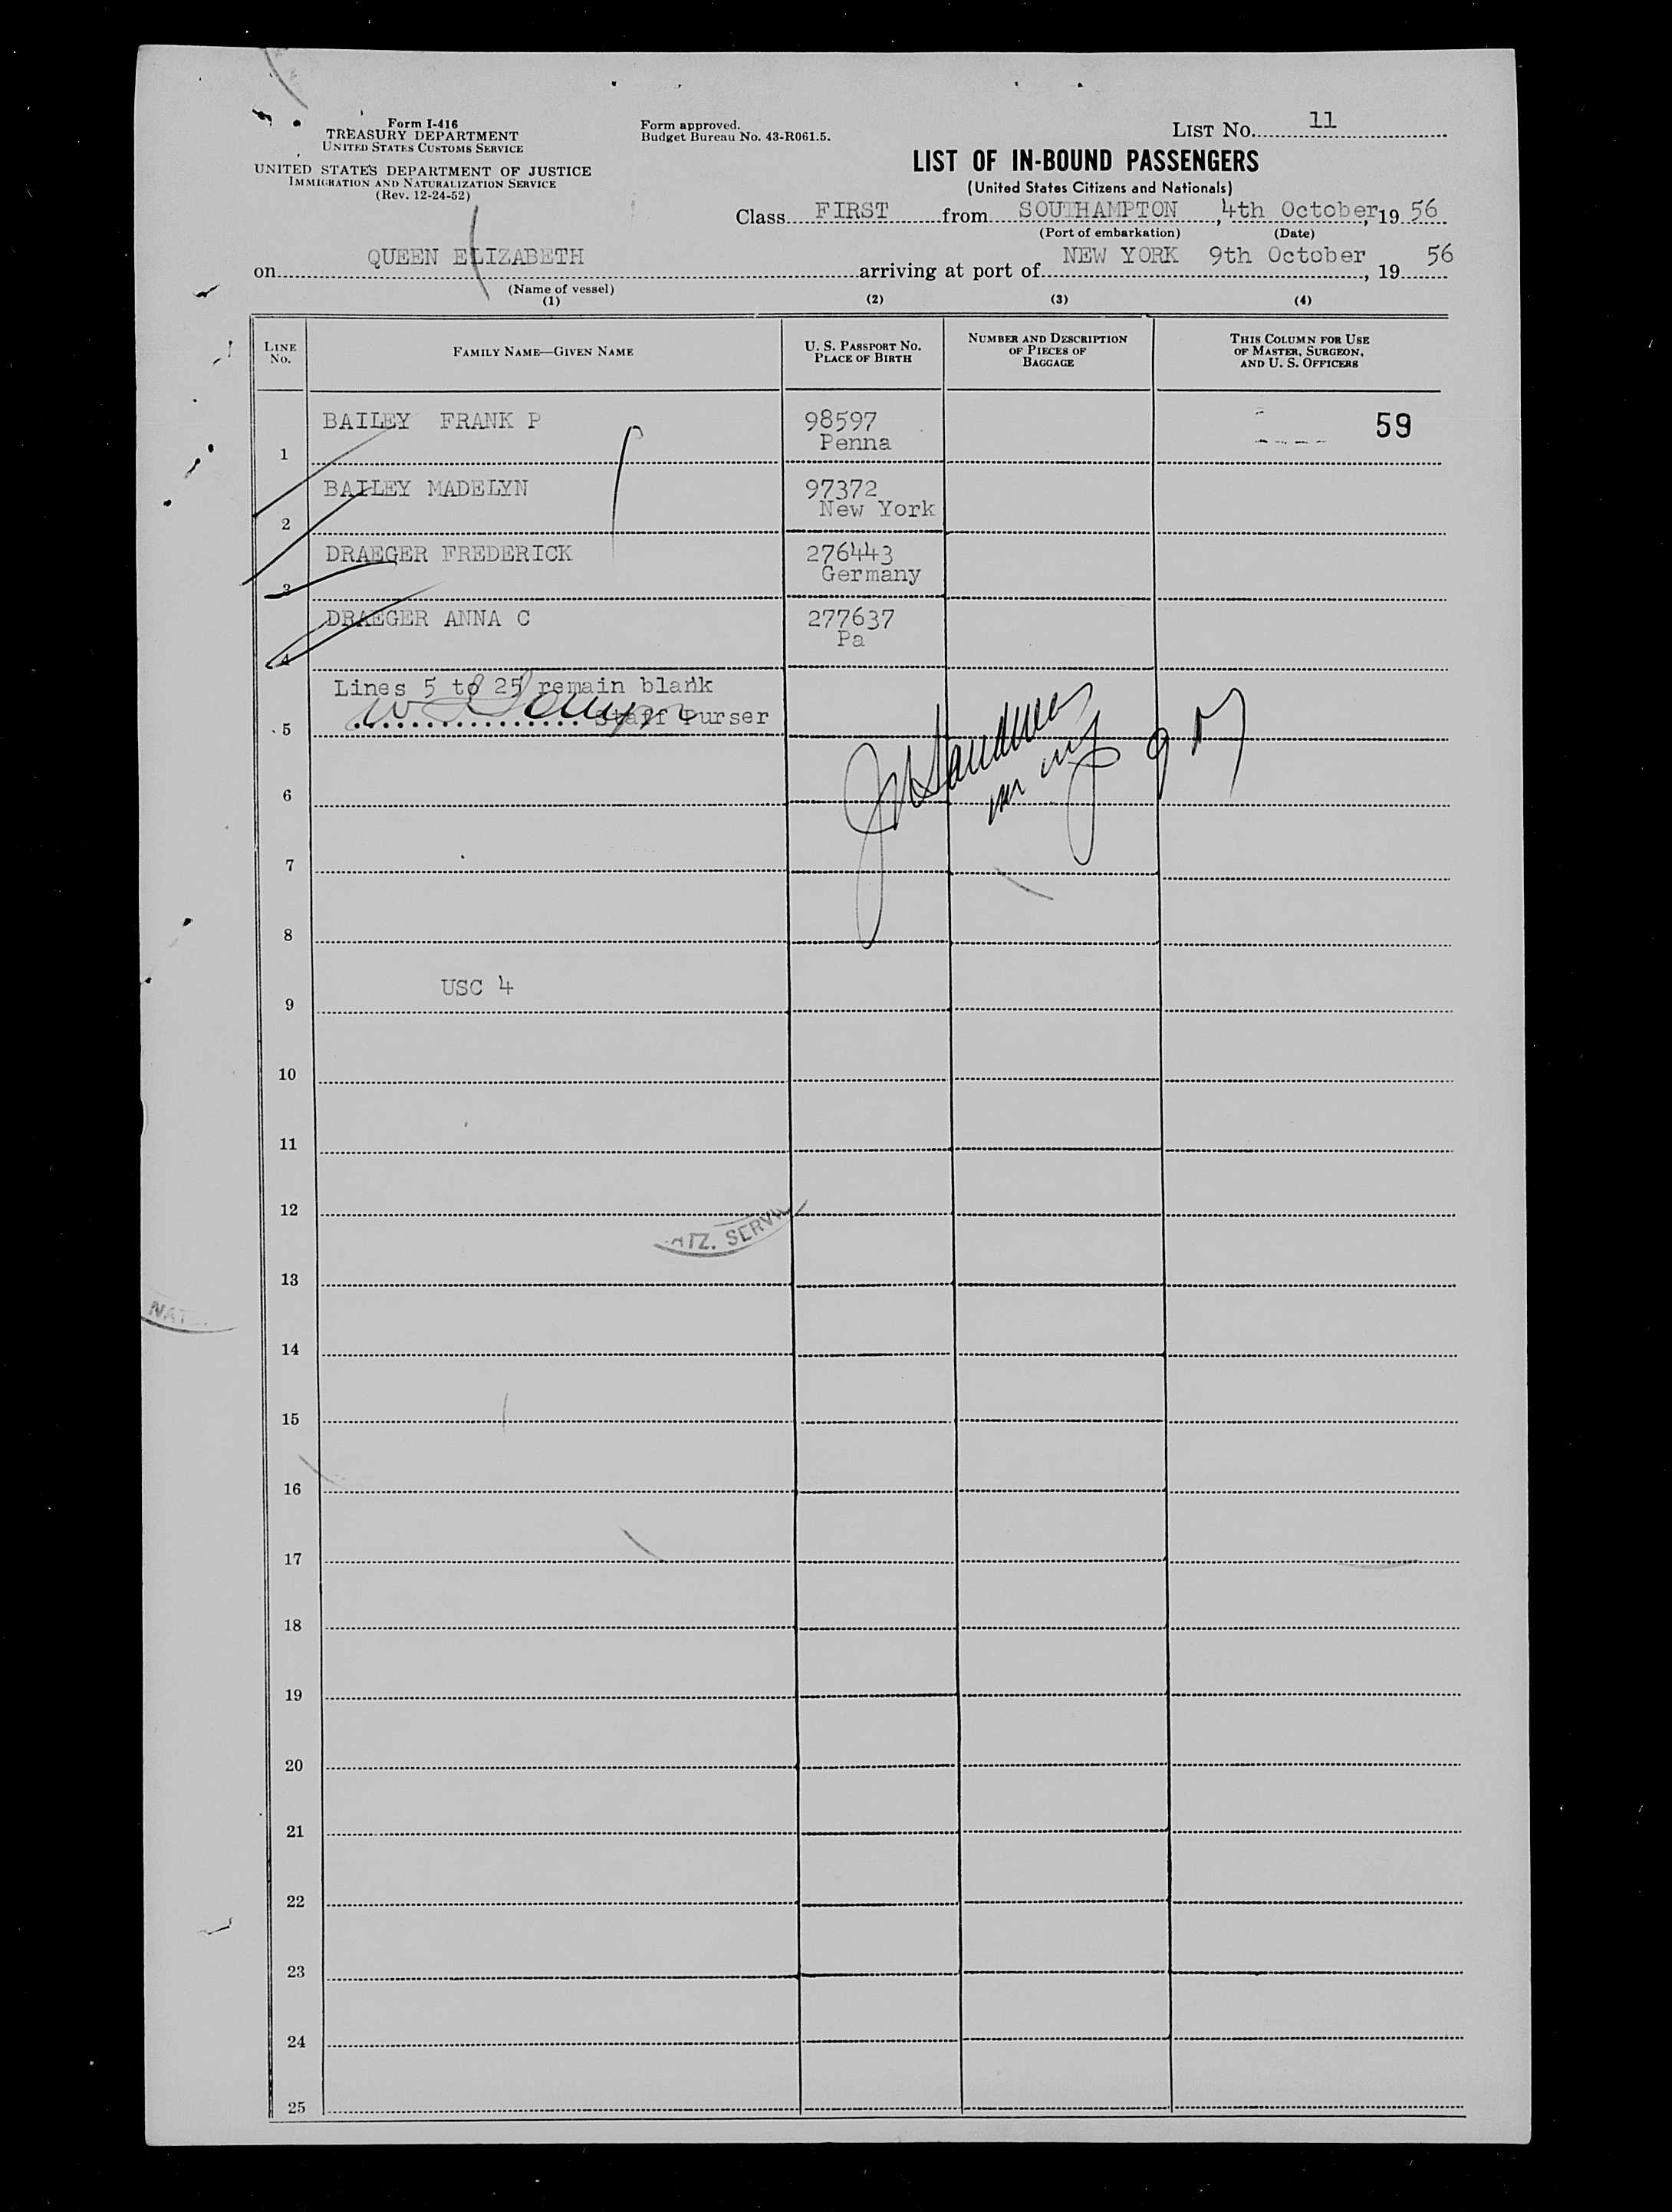 Form I-416
TREASURY DEPARTMENT
UNITED STATES CUSTOMS SERVICE
UNITED STATES DEPARTMENT OF JUSTICE
IMMIGRATION AND NATURALIZATION SERVICE
(Rev. 12-24-52)
Form approved.
Budget Bureau No. 43-R061.5.
LIST No. 11
LIST OF IN-BOUND PASSENGERS
(United States Citizens and Nationals)
Class FIRST from SOUTHAMPTON, 4th October, 19 56
(Port of embarkation) (Date)
on QUEEN ELIZABETH arriving at port of NEW YORK 9th October, 19 56
(Name of vessel)
(1) (2) (3) (4)
LINE No. FAMILY NAME—GIVEN NAME U. S. PASSPORT No. PLACE OF BIRTH NUMBER AND DESCRIPTION OF PIECES OF BAGGAGE THIS COLUMN FOR USE OF MASTER, SURGEON, AND U. S. OFFICERS
1 BAILEY FRANK P 98597 Penna 59
2 BAILEY MADELYN 97372 New York
3 DRAEGER FREDERICK 276443 Germany
4 DRAEGER ANNA C 277637 Pa
Lines 5 to 25 remain blank
5 Staff Purser
6
7
8
9 USC 4
10
11
12
SERVI
13
NAT
14
15
16
17
18
19
20
21
22
23
24
25